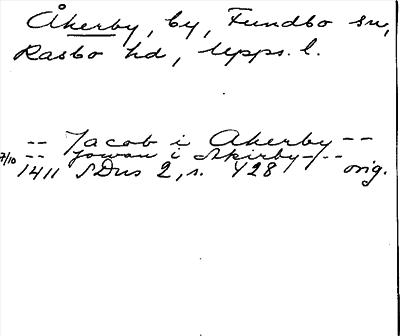 Åkerby, by, Fundbo sn,
Rasbo hd, Upps. l.
-- Jacob i Akerby --
-- Jowan i Akirby --
7/10 1411 SDns 2, s. 428 orig.